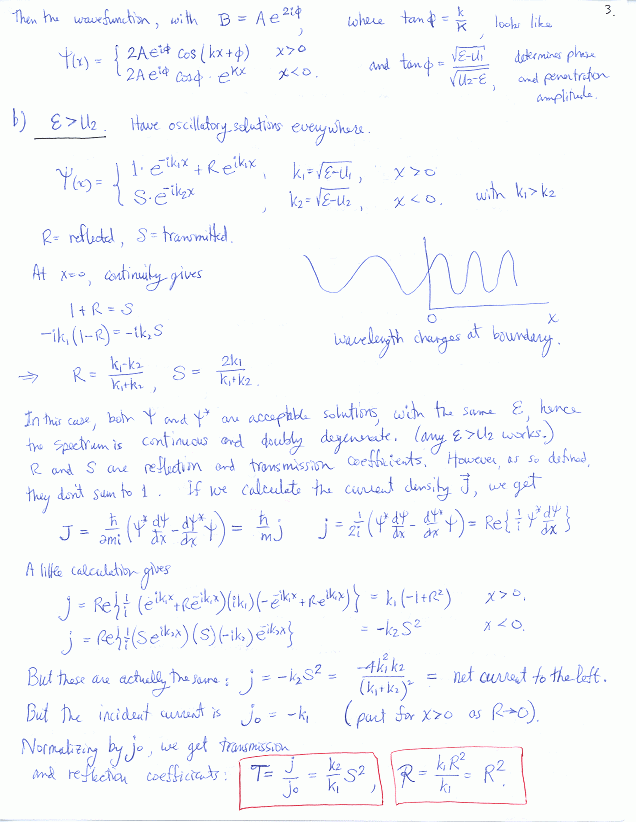 3.
Then the wavefunction, with B = Ae^{2iϕ}, where tanϕ = k/K, looks like
Ψ(x) = { 2Ae^{iϕ} cos(kx+ϕ) x>0
2Ae^{iϕ} cosϕ · e^{Kx} x<0.
and tanϕ = √(ε-U₁)/√(U₂-ε), determines phase and penetration amplitude.
b) ε>U₂. Have oscillatory solutions everywhere.
Ψ(x) = { 1·e^{-ik₁x} + Re^{ik₁x}, k₁=√(ε-U₁), x>0
S·e^{-ik₂x}, k₂=√(ε-U₂), x<0. with k₁>k₂
R = reflected, S = transmitted.
At x=0, continuity gives
1+R = S
-ik₁(1-R) = -ik₂S
⇒ R = (k₁-k₂)/(k₁+k₂), S = 2k₁/(k₁+k₂).
0 x
wavelength changes at boundary.
In this case, both Ψ and Ψ* are acceptable solutions, with the same ε, hence
the spectrum is continuous and doubly degenerate. (any ε>U₂ works.)
R and S are reflection and transmission coefficients. However, as so defined,
they don't sum to 1. If we calculate the current density J⃗, we get
J = ℏ/2mi (Ψ* dΨ/dx - dΨ*/dx Ψ) = ℏ/m j j = 1/2i (Ψ* dΨ/dx - dΨ*/dx Ψ) = Re{1/i Ψ* dΨ/dx}
A little calculation gives
j = Re{1/i (e^{ik₁x}+Re^{-ik₁x})(ik₁)(-e^{-ik₁x}+Re^{ik₁x})} = k₁(-1+R²) x>0.
j = Re{1/i (Se^{ik₂x})(S)(-ik₂)e^{-ik₂x}} = -k₂S² x<0.
But these are actually the same: j = -k₂S² = -4k₁²k₂/(k₁+k₂)² = net current to the left.
But the incident current is j₀ = -k₁ (part for x>0 as R→0).
Normalizing by j₀, we get transmission
and reflection coefficients: T = j/j₀ = k₂/k₁ S², R = k₁R²/k₁ = R².